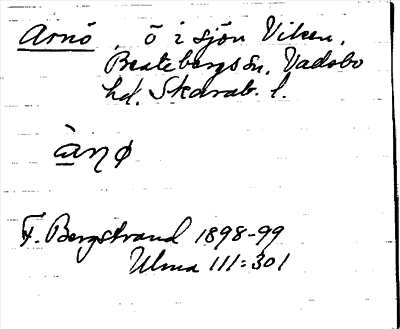 Arnö, ö i sjön Viken,
Beatebergs sn, Vadsbo
hd, Skarab. l.
àṇø
F. Bergstrand 1898-99
Ulma 111:301